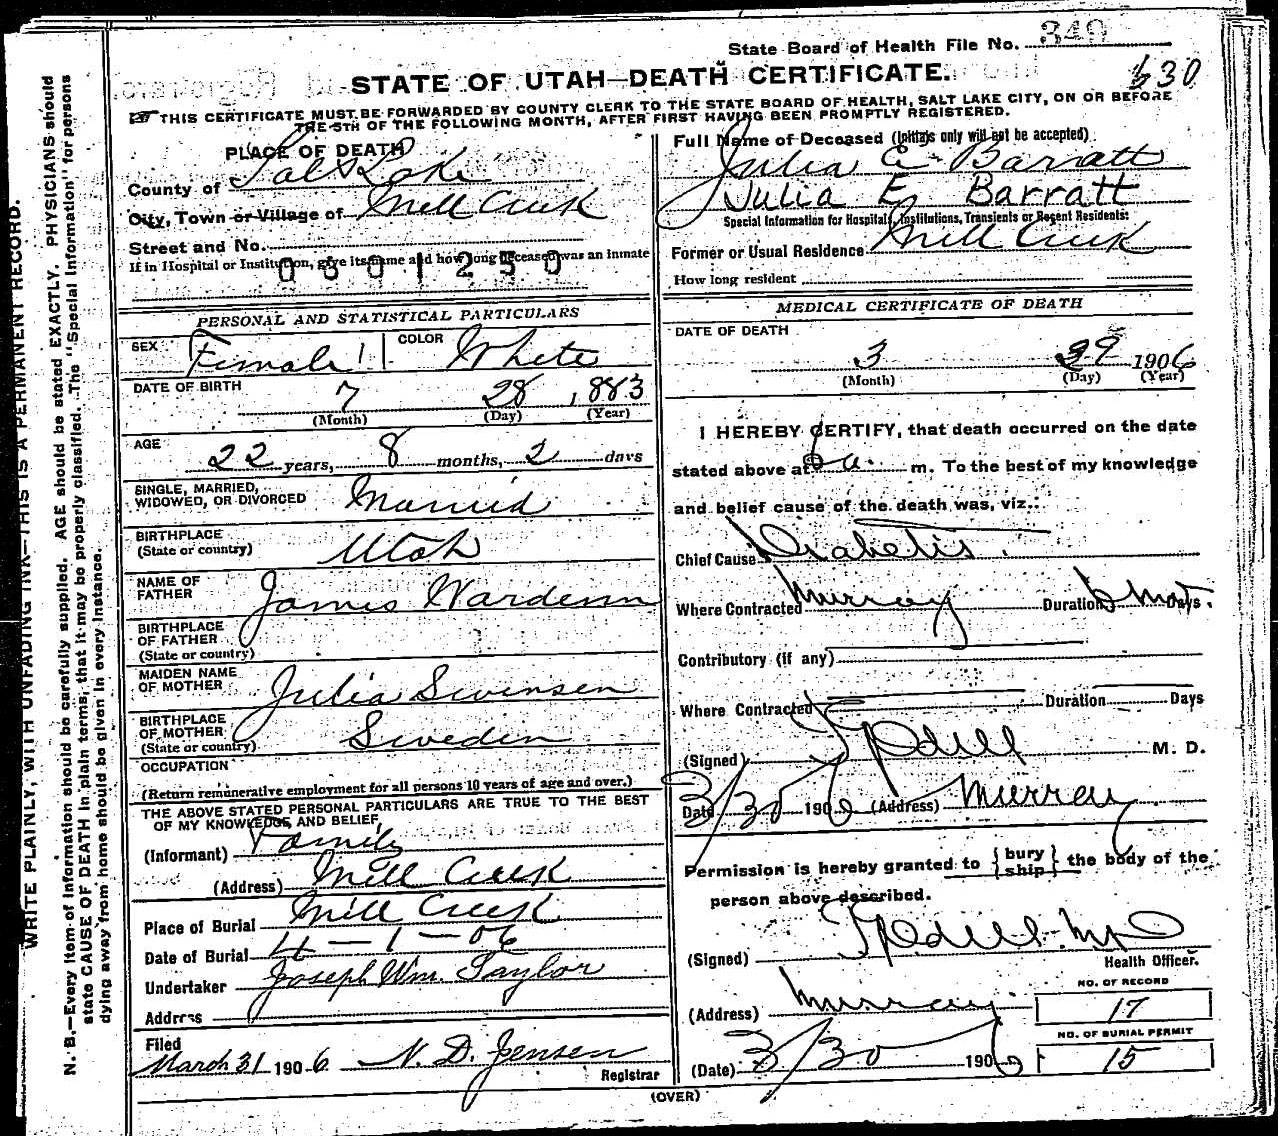 State Board of Health File No. 349
STATE OF UTAH—DEATH CERTIFICATE.
630
THIS CERTIFICATE MUST BE FORWARDED BY COUNTY CLERK TO THE STATE BOARD OF HEALTH, SALT LAKE CITY, ON OR BEFORE
THE 5TH OF THE FOLLOWING MONTH, AFTER FIRST HAVING BEEN PROMPTLY REGISTERED.
WRITE PLAINLY, WITH UNFADING INK—THIS IS A PERMANENT RECORD.
N. B.—Every item of information should be carefully supplied. AGE should be stated EXACTLY. PHYSICIANS should
state CAUSE OF DEATH in plain terms, that it may be properly classified. The "Special Information" for persons
dying away from home should be given in every instance.
PLACE OF DEATH
County of Salt Lake
City, Town or Village of Mill Creek
Street and No.
If in Hospital or Institution, give its name and how long deceased was an inmate
0301250
PERSONAL AND STATISTICAL PARTICULARS
SEX Female
COLOR White
DATE OF BIRTH 7 28, 1883
(Month) (Day) (Year)
AGE
22 years, 8 months, 2 days
SINGLE, MARRIED,
WIDOWED, OR DIVORCED Married
BIRTHPLACE
(State or country) Utah
NAME OF
FATHER James
BIRTHPLACE
OF FATHER
(State or country)
MAIDEN NAME
OF MOTHER Julia Swensen
BIRTHPLACE
OF MOTHER
(State or country) Sweden
OCCUPATION
(Return remunerative employment for all persons 10 years of age and over.)
THE ABOVE STATED PERSONAL PARTICULARS ARE TRUE TO THE BEST
OF MY KNOWLEDGE AND BELIEF
(Informant) Family
(Address) Mill Creek
Place of Burial Mill Creek
Date of Burial 4-1-06
Undertaker Joseph Wm. Taylor
Address
Filed
March 31 1906 N. D. Jensen
Registrar
Full Name of Deceased (Initials only will not be accepted)
Julia E Barratt
Julia E Barratt
Special Information for Hospitals, Institutions, Transients or Recent Residents:
Former or Usual Residence Mill Creek
How long resident
MEDICAL CERTIFICATE OF DEATH
DATE OF DEATH
3 29 1906
(Month) (Day) (Year)
I HEREBY CERTIFY, that death occurred on the date
stated above at 6 a. m. To the best of my knowledge
and belief cause of the death was, viz.:
Chief Cause Diabetis.
Where Contracted Murray Duration 6 mos Days.
Contributory (if any)
Where Contracted Duration Days
(Signed) M. D.
Date 3/30 1906 (Address) Murray
Permission is hereby granted to {bury ship} the body of the
person above described.
(Signed)
Health Officer.
(Address) Murray
(Date) 3/30 1906
NO. OF RECORD
17
NO. OF BURIAL PERMIT
15
(OVER)